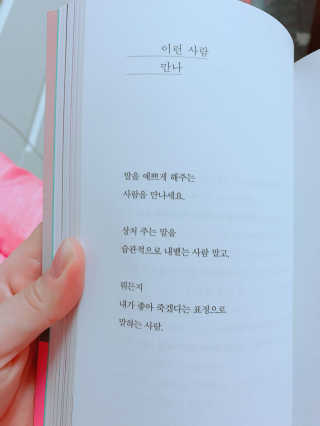 이런 사람
만나
말을 예쁘게 해주는
사람을 만나세요.
상처 주는 말을
습관적으로 내뱉는 사람 말고.
뭐든지
내가 좋아 죽겠다는 표정으로
말하는 사람.